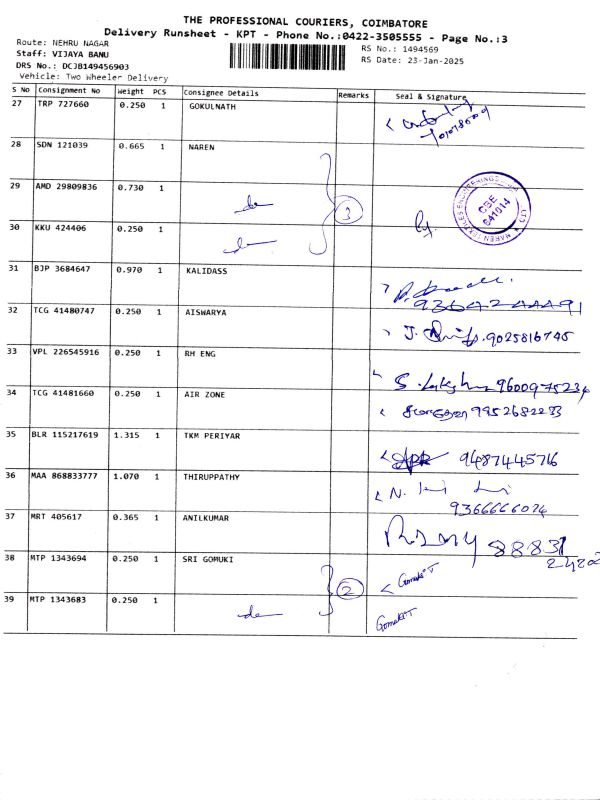 THE PROFESSIONAL COURIERS, COIMBATORE
Delivery Runsheet - KPT - Phone No.:0422-3505555 - Page No.:3
Route: NEHRU NAGAR
RS No.: 1494569
Staff: VIJAYA BANU
RS Date: 23-Jan-2025
DRS No.: DCJB149456903
Vehicle: Two Wheeler Delivery
S No Consignment No Weight PCS Consignee Details Remarks Seal & Signature
27 TRP 727660 0.250 1 GOKULNATH
28 SDN 121039 0.665 1 NAREN
29 AMD 29809836 0.730 1 do 3
CBE 641014
30 KKU 424406 0.250 1 do
31 BJP 3684647 0.970 1 KALIDASS
9364244491
32 TCG 41480747 0.250 1 AISWARYA
J. 9025816745
33 VPL 226545916 0.250 1 RH ENG
S. 9600975234
34 TCG 41481660 0.250 1 AIR ZONE
9952682233
35 BLR 115217619 1.315 1 TKM PERIYAR
9487445716
36 MAA 868833777 1.070 1 THIRUPPATHY
N.
9366666074
37 MRT 405617 0.365 1 ANILKUMAR
38 MTP 1343694 0.250 1 SRI GOMUKI 2 Gomaki T
39 MTP 1343683 0.250 1 do Gomaki T